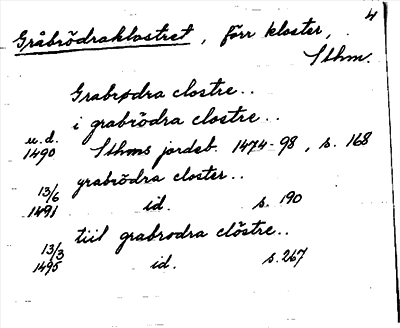 4
Gråbrödraklostret, förr kloster,
Sthm.
Grabrødra clostre..
i grabrödra clostre..
u.d.
1490 Sthms jordeb. 1474-98, s. 168
grabrödra closter..
13/6
1491 id. s. 190
tiil grabrodra clöstre..
13/3
1495 id. s. 267